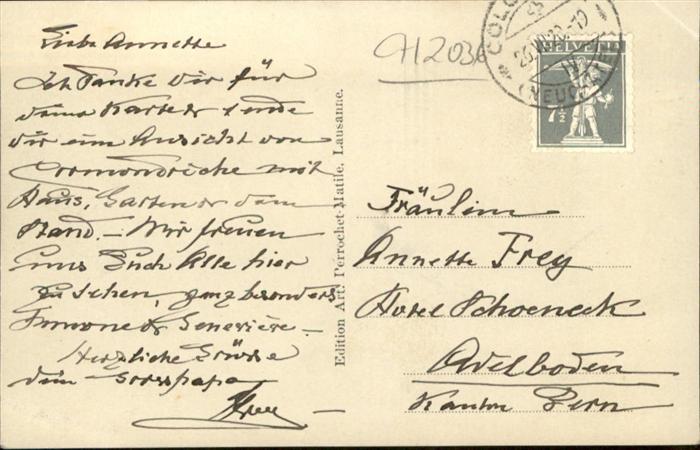 Liebe Annette
Ich danke dir für
deine Karte & sende
dir eine Ansicht von
Cormondrèche mit
Haus, Garten & dem
Stand. – Wir freuen
uns Euch Alle hier
zu sehen, ganz besonders
Simone & Geneviève –
Herzliche Grüsse
dein Grosspapa
Frey –
Edition Art. Perrochet-Matile, Lausanne.
H2036
(NEUCH
HELVETIA
7½
Fräulein
Annette Frey
Hotel Schoeneck
Adelboden
Kanton Bern